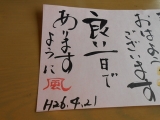 おはよう
ございます
良い一日で
あります
ように
風
H26.4.21